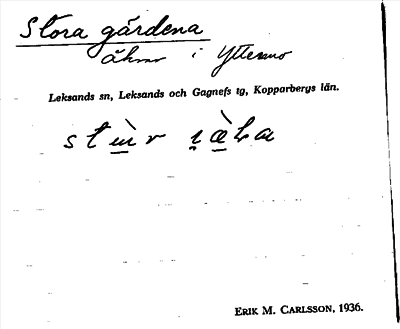 Stora gårdena
åkrar i Yttermo
Leksands sn, Leksands och Gagnefs tg, Kopparbergs län.
ERIK M. CARLSSON, 1936.